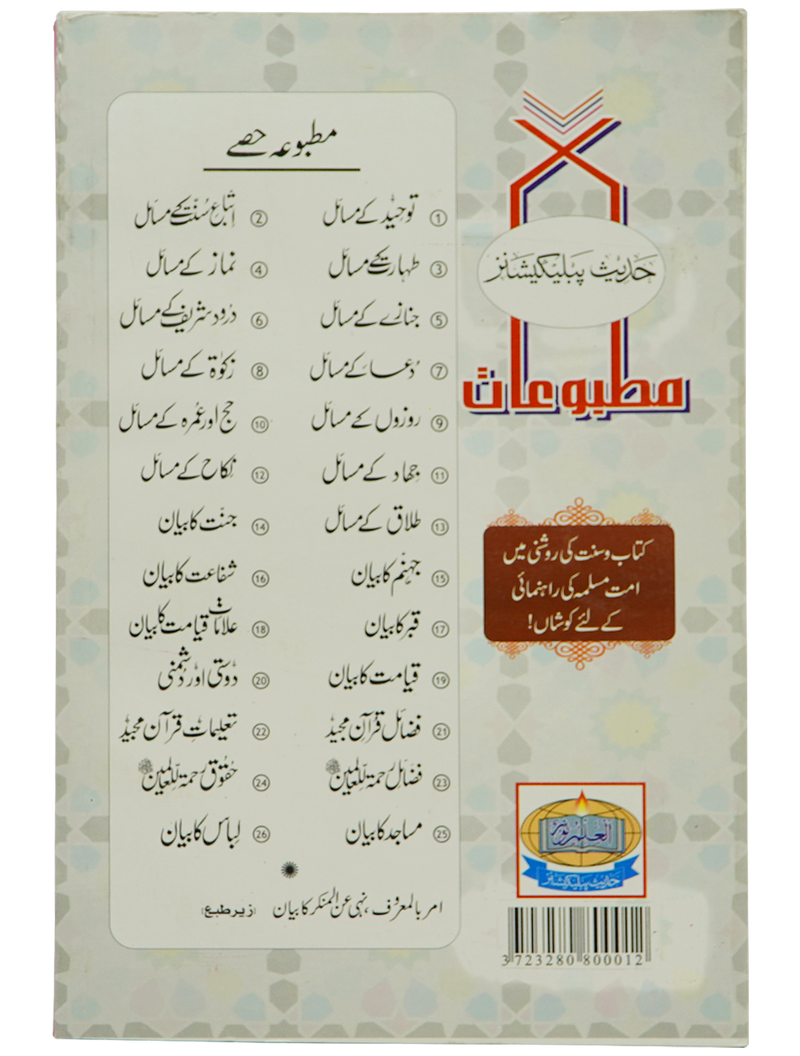 مطبوعہ حصے
① توحید کے مسائل ② اتباع سنت کے مسائل
③ طہارت کے مسائل ④ نماز کے مسائل
⑤ جنازے کے مسائل ⑥ درود شریف کے مسائل
⑦ دعا کے مسائل ⑧ زکوٰۃ کے مسائل
⑨ روزوں کے مسائل ⑩ حج اور عمرہ کے مسائل
⑪ جہاد کے مسائل ⑫ نکاح کے مسائل
⑬ طلاق کے مسائل ⑭ جنت کا بیان
⑮ جہنم کا بیان ⑯ شفاعت کا بیان
⑰ قبر کا بیان ⑱ علامات قیامت کا بیان
⑲ قیامت کا بیان ⑳ دوستی اور دشمنی
㉑ فضائل قرآن مجید ㉒ تعلیمات قرآن مجید
㉓ فضائل رحمۃ للعالمین ﷺ ㉔ حقوق رحمۃ للعالمین ﷺ
㉕ مساجد کا بیان ㉖ لباس کا بیان
امر بالمعروف، نہی عن المنکر کا بیان (زیر طبع)
حدیث پبلیکیشنز
مطبوعات
کتاب و سنت کی روشنی میں
امت مسلمہ کی راہنمائی
کے لئے کوشاں!
العلم نور
حدیث پبلیکیشنز
3723280800012